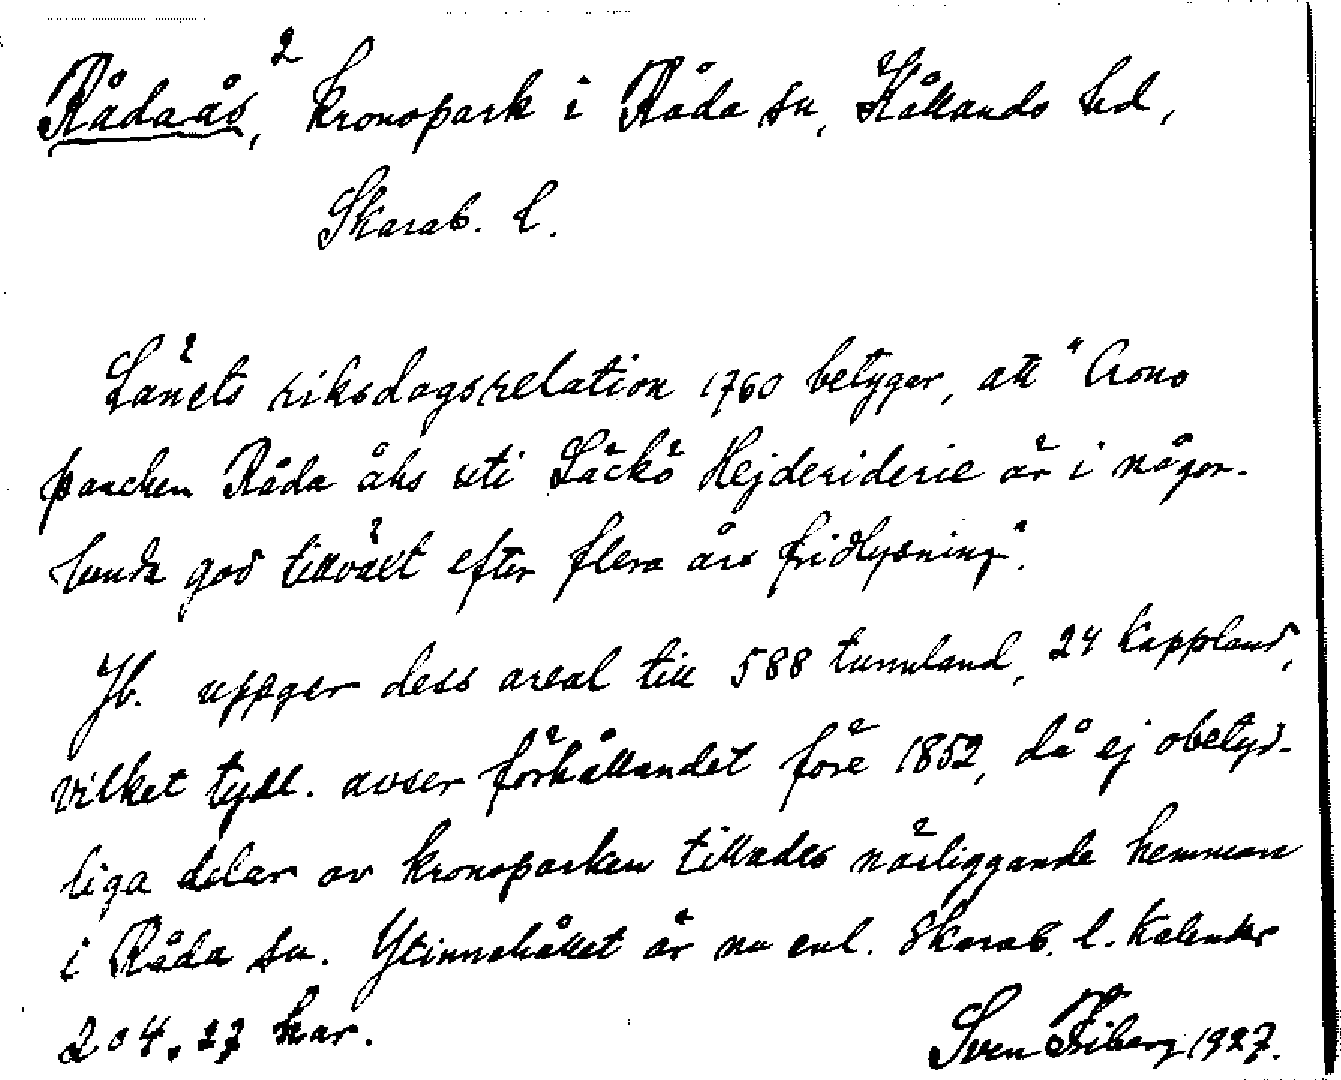 Rådaås,² kronopark i Råda sn, Kållands hd,
Skarab. l.
Länets riksdagsrelation 1760 betygar, att "Crono
parcken Råda åhs uti Läckö Hejderiderie är i någor-
lunda god tillväxt efter flera års fridlysning".
Jb. uppger dess areal till 588 tunnland, 24 kappland,
vilket tydl. avser förhållandet före 1852, då ej obetyd-
liga delar av kronoparken tillades närliggande hemman
i Råda sn. Ytinnehållet är nu enl. Skarab. l. kalender
204.27 har.
Sven Friberg 1927.